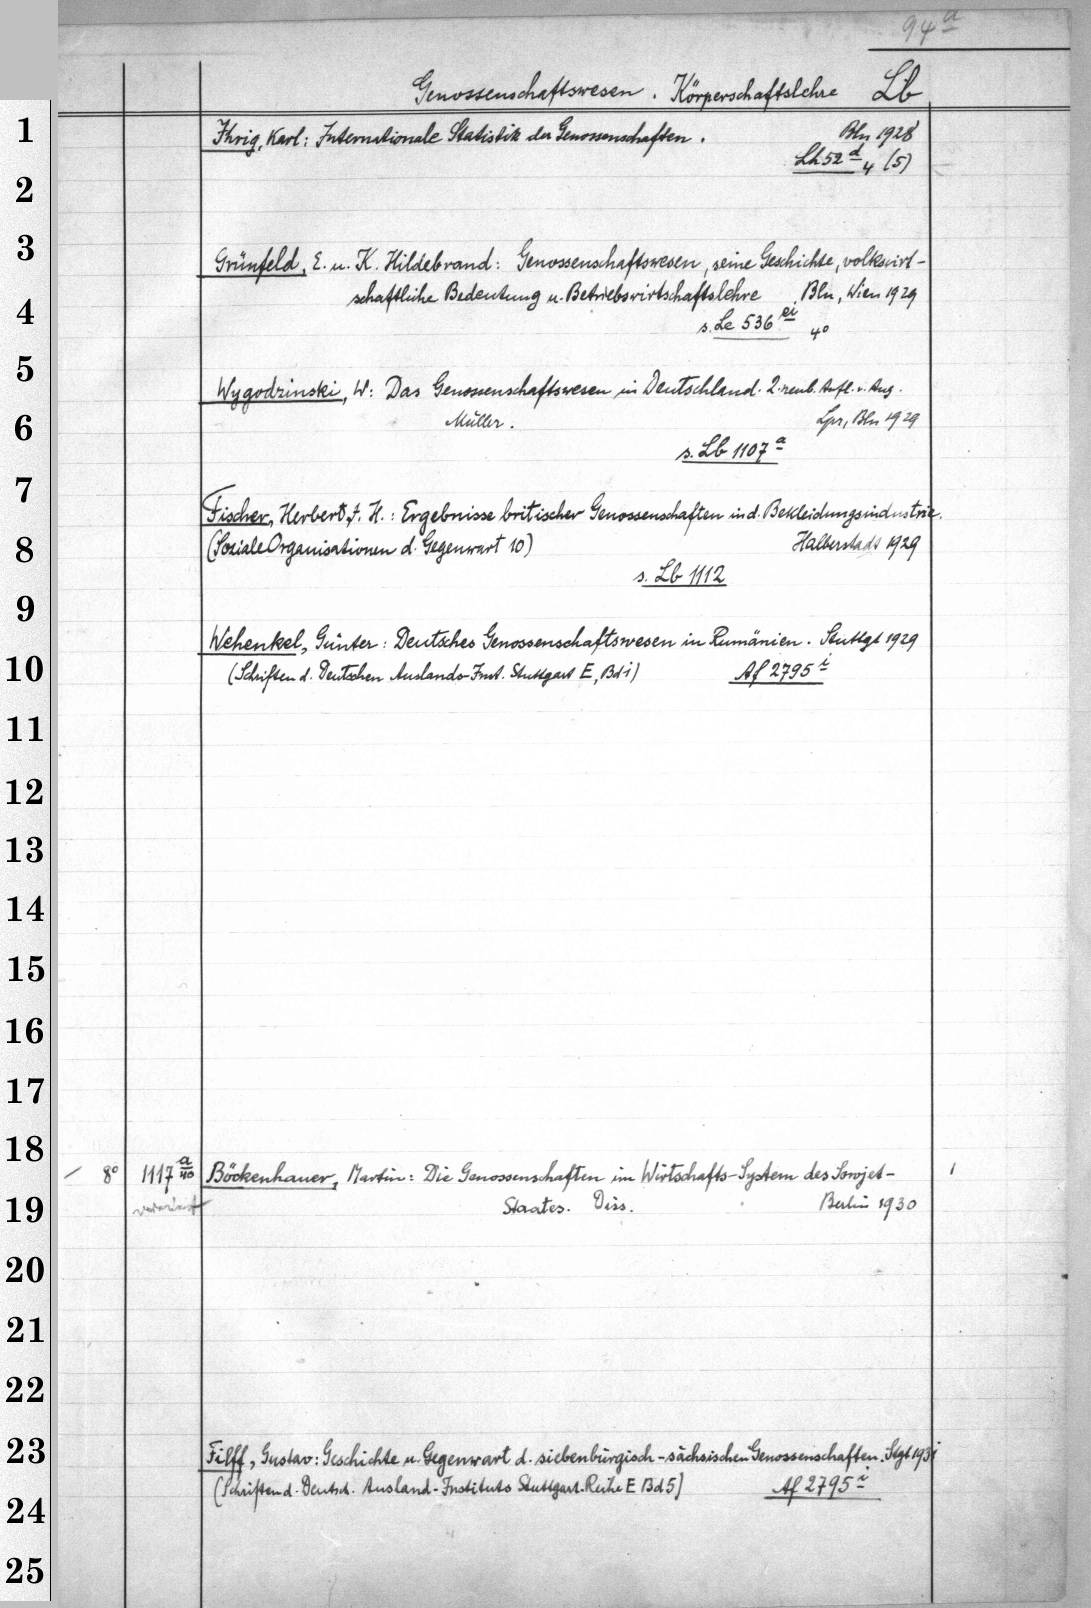 94a
Genossenschaftswesen. Körperschaftslehre Lb
1 Ihrig, Karl: Internationale Statistik der Genossenschaften. Bln 1928
Lh 52 d 4 (5)
2
3 Grünfeld, E. u. K. Hildebrand: Genossenschaftswesen, seine Geschichte, volkswirt-
schaftliche Bedeutung u. Betriebswirtschaftslehre Bln, Wien 1929
4 s. Le 536 ei 4°
5 Wygodzinski, W: Das Genossenschaftswesen in Deutschland. 2. neub. Aufl. v. Aug.
6 Müller. Lpz, Bln 1929
s. Lb 1107 a
7 Fischer, Herbert J. H.: Ergebnisse britischer Genossenschaften in d. Bekleidungsindustrie.
8 (Soziale Organisationen d. Gegenwart 10) Halberstadt 1929
s. Lb 1112
9 Wehenkel, Günter: Deutsches Genossenschaftswesen in Rumänien. Stuttgt 1929
10 (Schriften d. Deutschen Auslands-Inst. Stuttgart E, Bd 1) Af 2795 i
11
12
13
14
15
16
17
18 8° 1117 a/40 Böckenhauer, Martin: Die Genossenschaften im Wirtschafts-System des Sowjet- 1
19 Staates. Diss. Berlin 1930
20
21
22
23 Filff, Gustav: Geschichte u. Gegenwart d. siebenbürgisch-sächsischen Genossenschaften. Stgt 1931
24 (Schriften d. Deutsch. Ausland-Instituts Stuttgart. Reihe E Bd 5) Af 2795 i
25